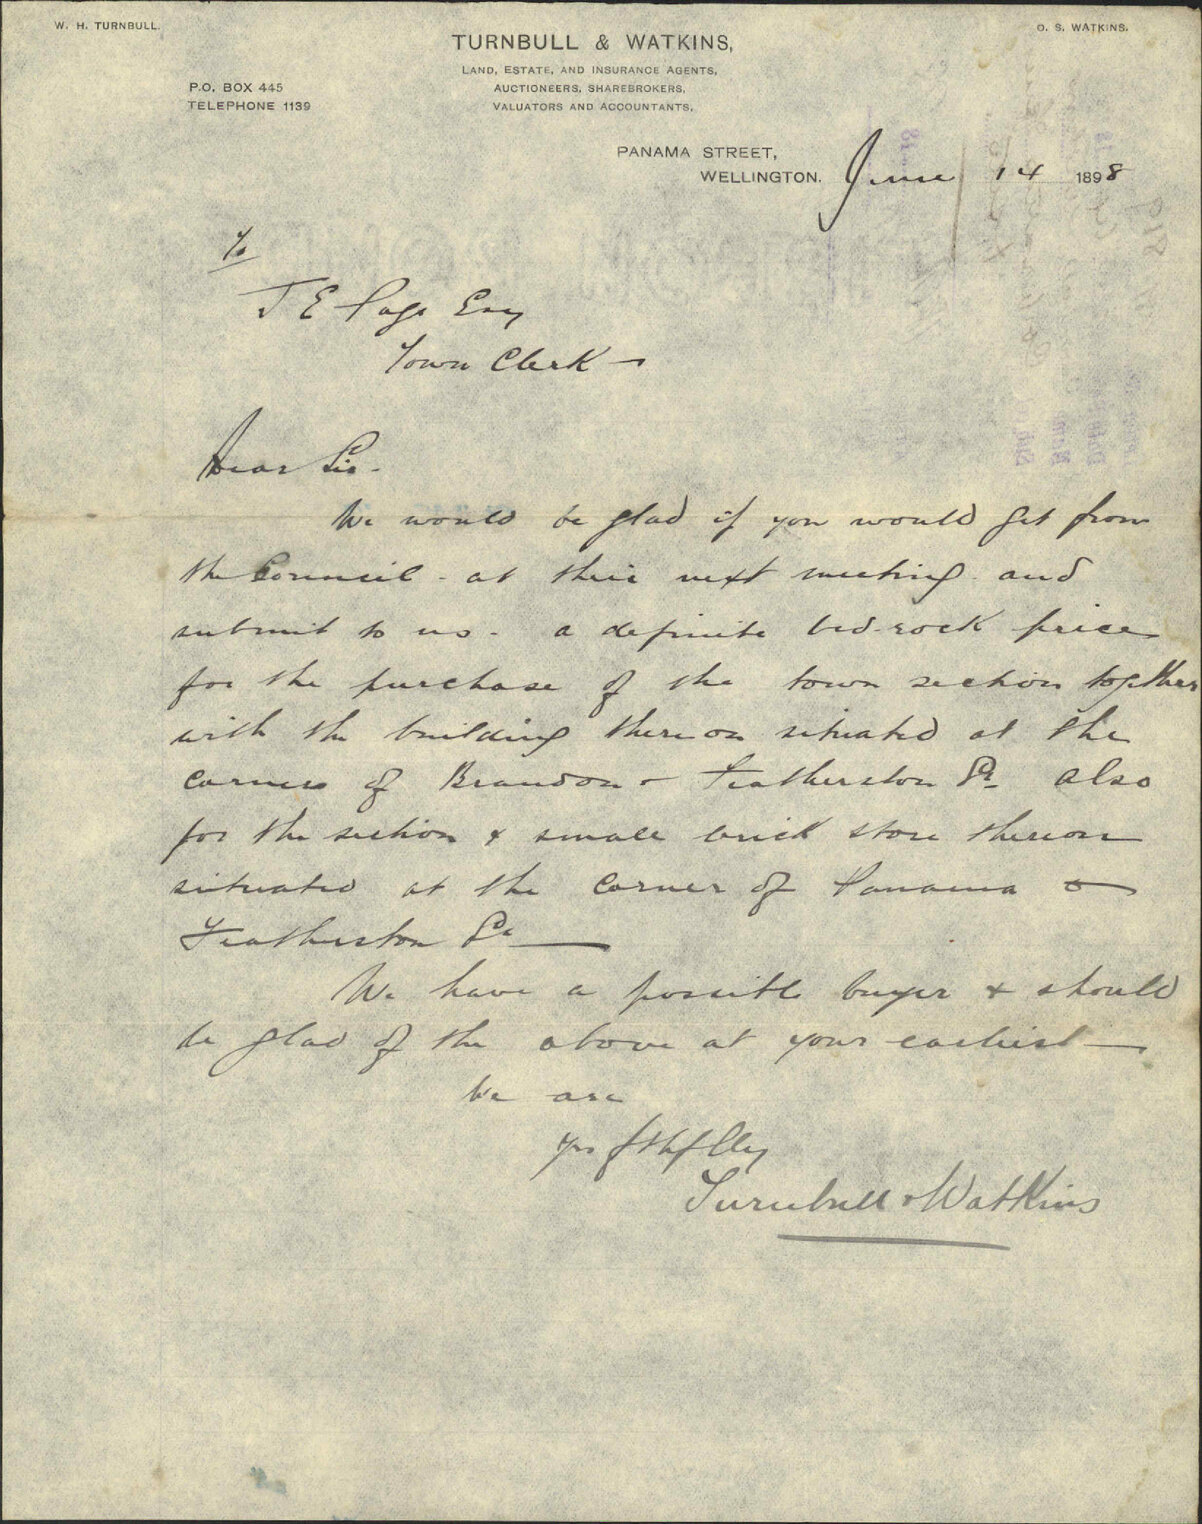 W. H. TURNBULL.
O. S. WATKINS.
TURNBULL & WATKINS,
LAND, ESTATE, AND INSURANCE AGENTS,
AUCTIONEERS, SHAREBROKERS,
VALUATORS AND ACCOUNTANTS.
P.O. BOX 445
TELEPHONE 1139
PANAMA STREET,
WELLINGTON. June 14 1898
To
J E Page Esq
Town Clerk
Dear Sir.
We would be glad if you would get from
the Council - at their next meeting and
submit to us - a definite bed-rock price
for the purchase of the town section together
with the building thereon situated at the
corner of Brandon & Featherston St. also
for the section & small brick store thereon
situated at the corner of Panama &
Featherston St
We have a possible buyer & should
be glad of the above at your earliest
We are
Yrs fthflly
Turnbull & Watkins